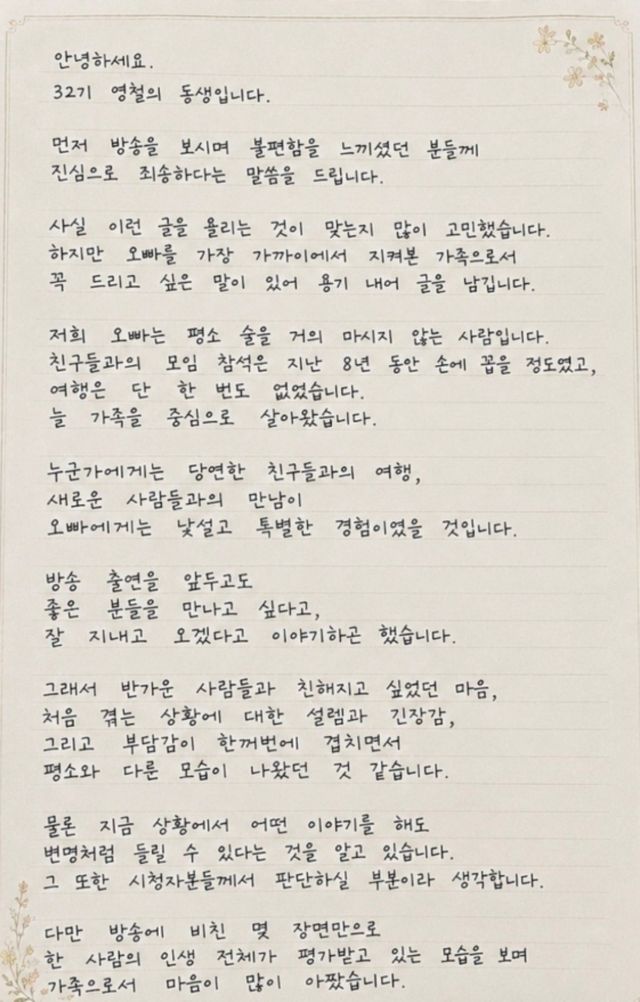 안녕하세요.
32기 영철의 동생입니다.
먼저 방송을 보시며 불편함을 느끼셨던 분들께
진심으로 죄송하다는 말씀을 드립니다.
사실 이런 글을 올리는 것이 맞는지 많이 고민했습니다.
하지만 오빠를 가장 가까이에서 지켜본 가족으로서
꼭 드리고 싶은 말이 있어 용기 내어 글을 남깁니다.
저희 오빠는 평소 술을 거의 마시지 않는 사람입니다.
친구들과의 모임 참석은 지난 8년 동안 손에 꼽을 정도였고,
여행은 단 한 번도 없었습니다.
늘 가족을 중심으로 살아왔습니다.
누군가에게는 당연한 친구들과의 여행,
새로운 사람들과의 만남이
오빠에게는 낯설고 특별한 경험이였을 것입니다.
방송 출연을 앞두고도
좋은 분들을 만나고 싶다고,
잘 지내고 오겠다고 이야기하곤 했습니다.
그래서 반가운 사람들과 친해지고 싶었던 마음,
처음 겪는 상황에 대한 설렘과 긴장감,
그리고 부담감이 한꺼번에 겹치면서
평소와 다른 모습이 나왔던 것 같습니다.
물론 지금 상황에서 어떤 이야기를 해도
변명처럼 들릴 수 있다는 것을 알고 있습니다.
그 또한 시청자분들께서 판단하실 부분이라 생각합니다.
다만 방송에 비친 몇 장면만으로
한 사람의 인생 전체가 평가받고 있는 모습을 보며
가족으로서 마음이 많이 아팠습니다.